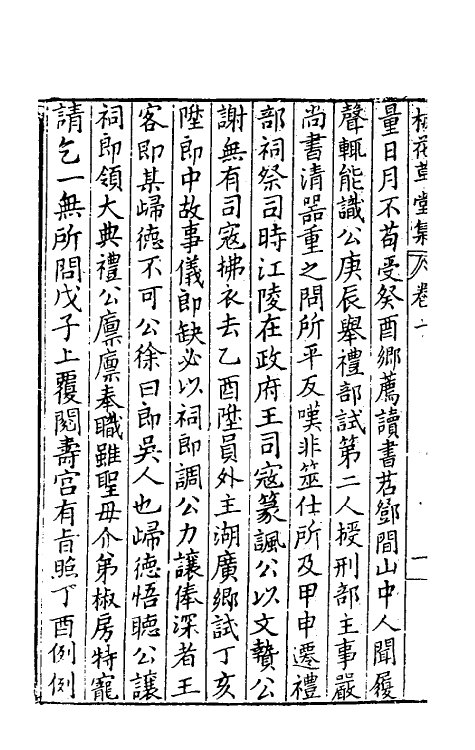 梅花草堂集卷十
一
量日月不苟受癸酉鄉薦讀書苕鄧間山中人聞履
聲輒能識公庚辰舉禮部試第二人授刑部主事嚴
尚書清器重之問所平反嘆非筮仕所及甲申遷禮
部祠祭司時江陵在政府王司寇篆諷公以文贄公
謝無有司寇拂衣去乙酉陞員外主湖廣鄉試丁亥
陞郎中故事儀郎缺必以祠郎調公力讓俸深者王
客即某歸德不可公徐曰郎吳人也歸德悟聽公讓
祠郎領大典禮公廪廪奉職雖聖母介弟椒房特寵
請乞一無所問戊子上覆閱壽宮有旨照丁酉例例